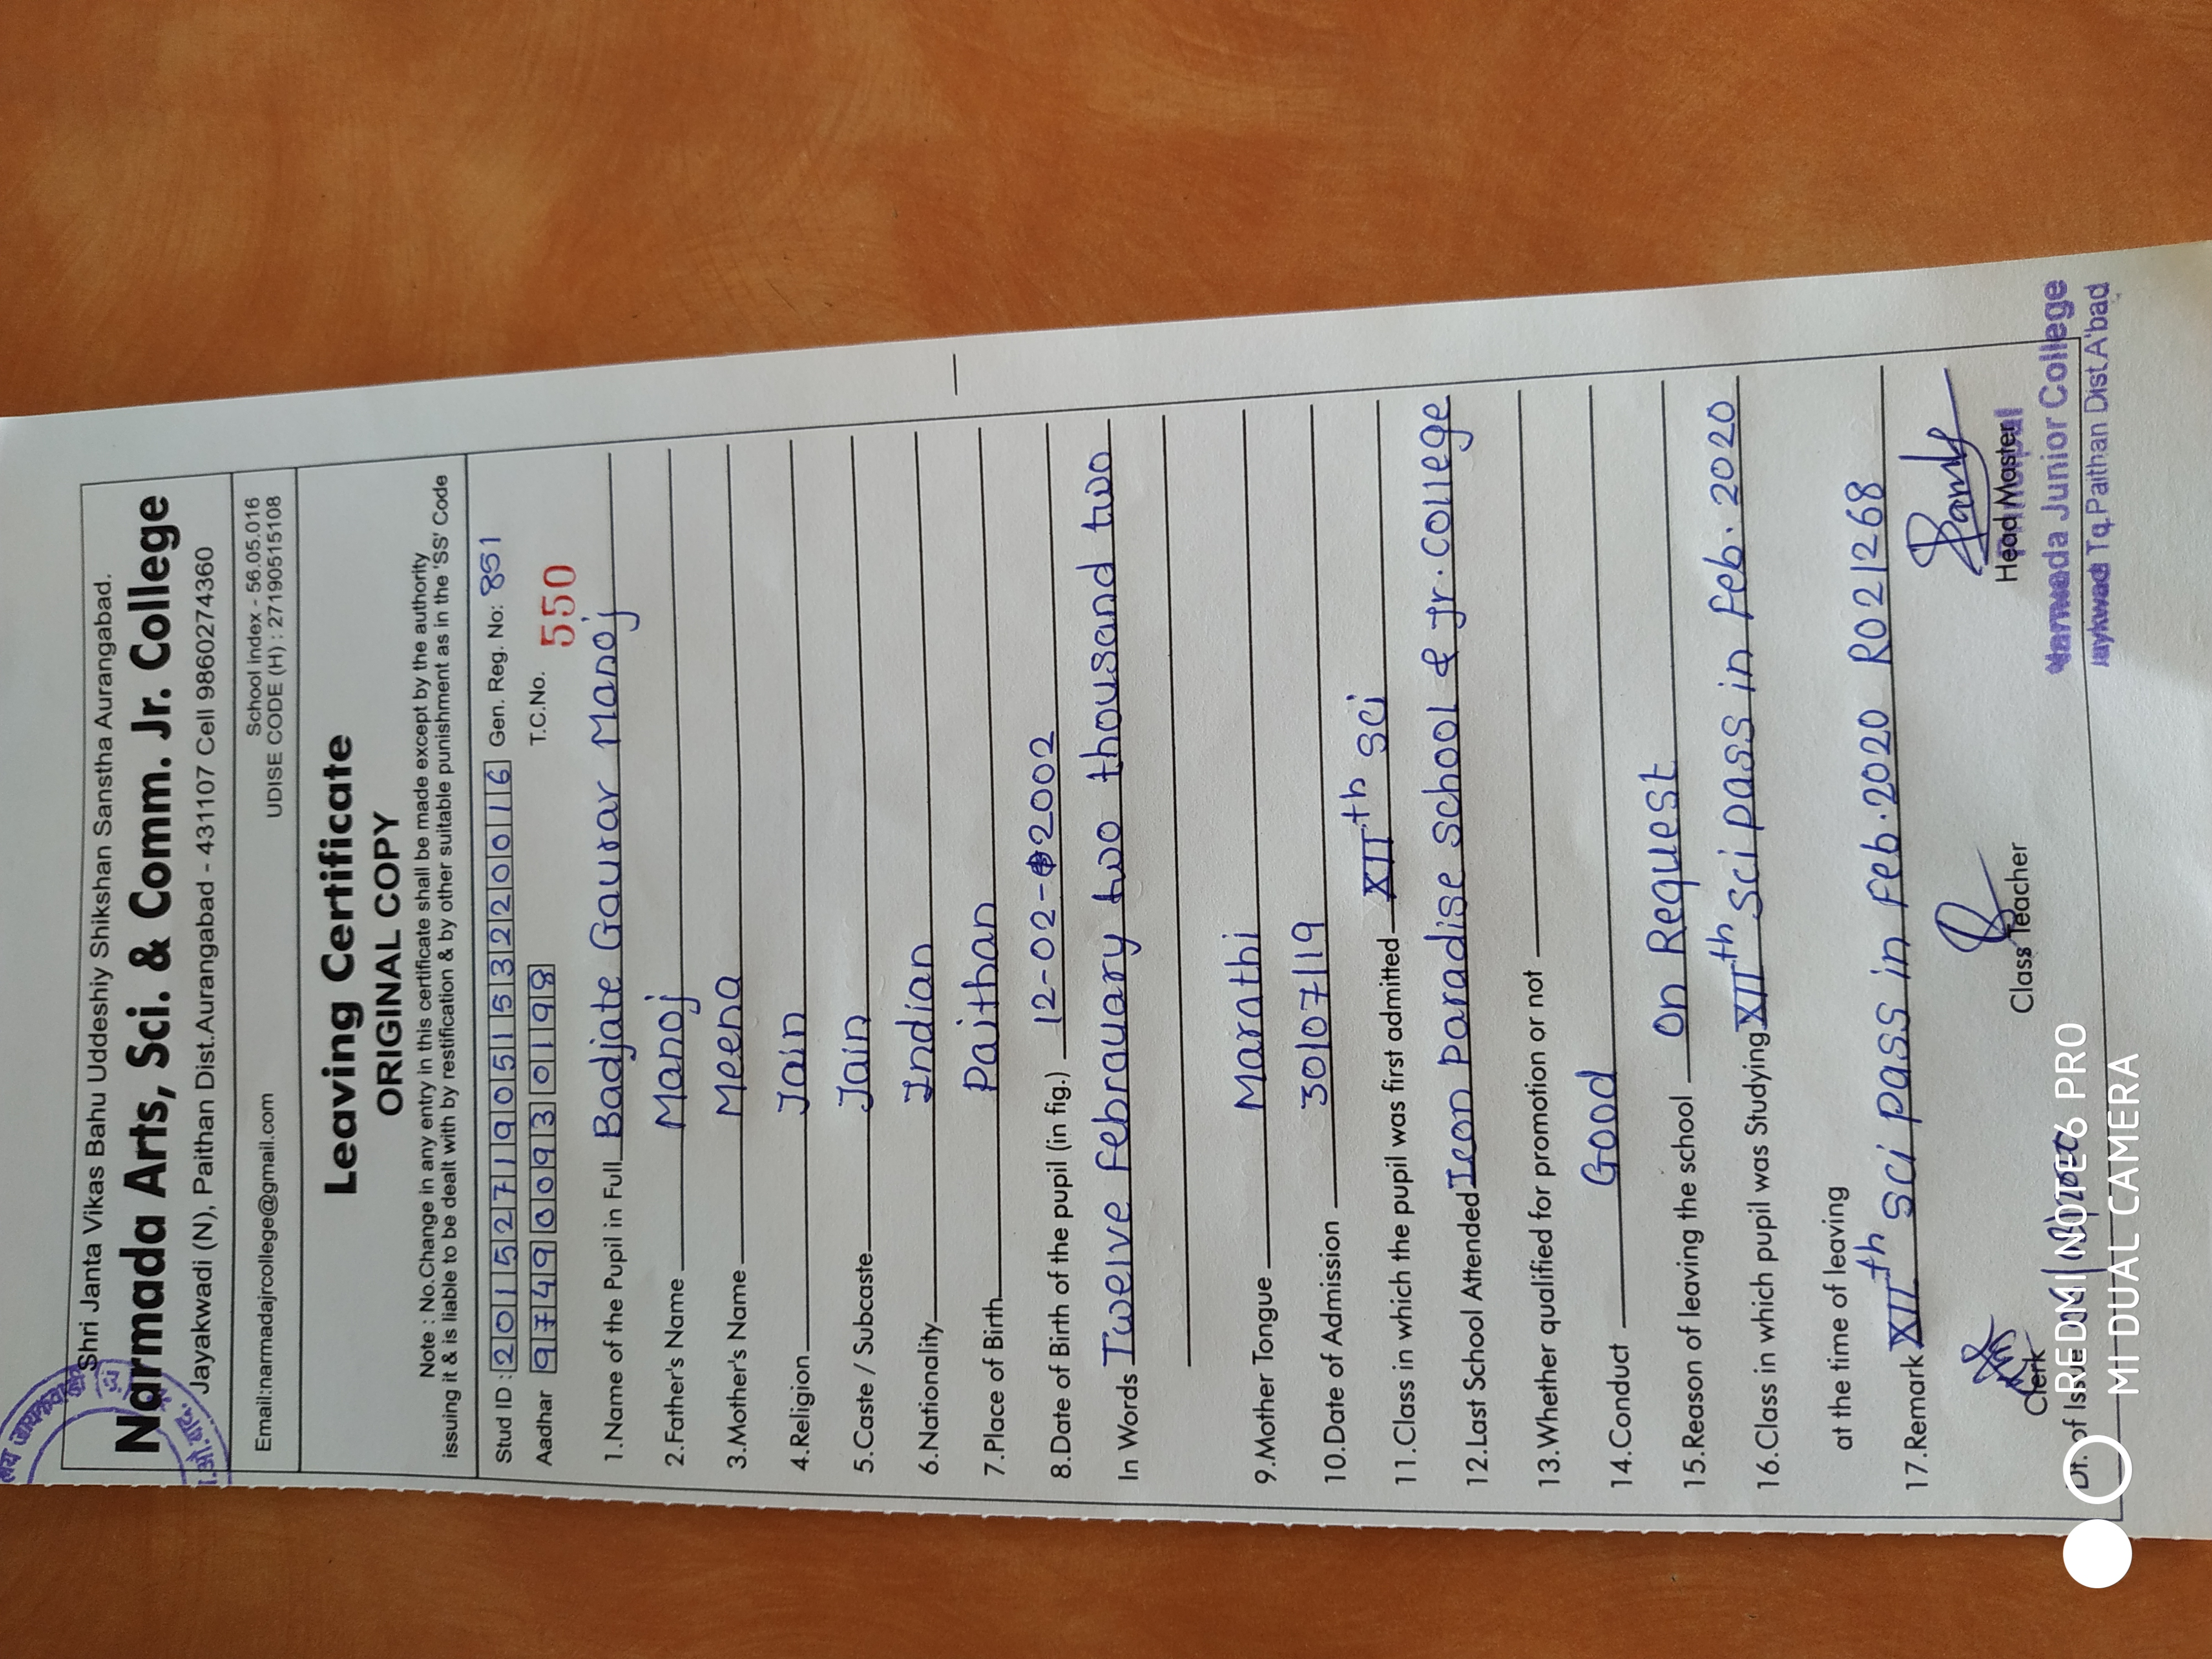 Shri Janta Vikas Bahu Uddeshiy Shikshan Sanstha Aurangabad.
Narmada Arts, Sci. & Comm. Jr. College
Jayakwadi (N), Paithan Dist.Aurangabad - 431107 Cell 9860274360
School Index - 56.05.016
Email:narmadajrcollege@gmail.com UDISE CODE (H) : 27190515108
Leaving Certificate
ORIGINAL COPY
Note : No.Change in any entry in this certificate shall be made except by the authority
issuing it & is liable to be dealt with by restification & by other suitable punishment as in the 'SS' Code
Stud ID : 2015271905153220016 Gen. Reg. No: 851
Aadhar 974900930198 T.C.No. 550
1.Name of the Pupil in Full Badjate Gaurav Manoj
2.Father's Name Manoj
3.Mother's Name Meena
4.Religion Jain
5.Caste / Subcaste Jain
6.Nationality Indian
7.Place of Birth Paithan
8.Date of Birth of the pupil (in fig.) 12-02-2002
In Words Twelve Febrauary two thousand two
9.Mother Tongue Marathi
10.Date of Admission 30/07/19
11.Class in which the pupil was first admitted XIIth sci
12.Last School Attended Ieon Paradise School & Jr. College
13.Whether qualified for promotion or not
14.Conduct Good
15.Reason of leaving the school On Request
16.Class in which pupil was Studying XIIth sci pass in Feb. 2020
at the time of leaving
17.Remark XIIth sci pass in Feb.2020 R021268
Clerk Class Teacher Head Master
Narmada Junior College
Jaykwadi Tq.Paithan Dist.A'bad
Dt. of Issue
REDMI NOTE 6 PRO
MI DUAL CAMERA